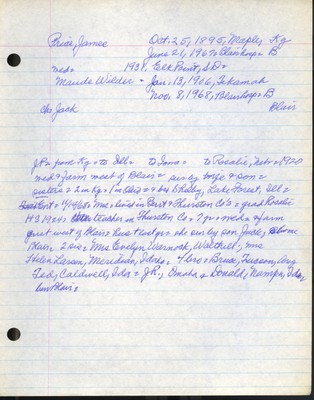 Price, James Oct. 25, 1895, Maple, Ky
June 21, 1967 = Blairhosp = B
med = 1938, Elk Point, S.D. =
Maude Wilder = Jan. 13, 1906, Tekamah
Nov. 8, 1968, Blairhosp = B
c/o Jack Blair
JP = from Ky = to Ill = to Iowa = to Rosalie, Nebr = 1920
med = farm west of Blair = sur by wife = son =
sisters = 2 in Ky = 1 in Ohio = Lake Forest, Ill =
4/14/68 = Mrs = lived in Burt = Thurston Co's = grad Rosalie
HS 1924 = teacher in Thurston Co = 7 yr = med = farm
just west of Blair = husb = sur by son Jack, home
Blair = 2 sis = Mrs Evelyn Warnock, Walthill, = Mrs
Helen Larsen, Meridian, Idaho = 4 bro = Bruce, Tucson,
Ted, Caldwell, Ida = J.R., Omaha = Donald, Nampa, Ida,
bur Blair =